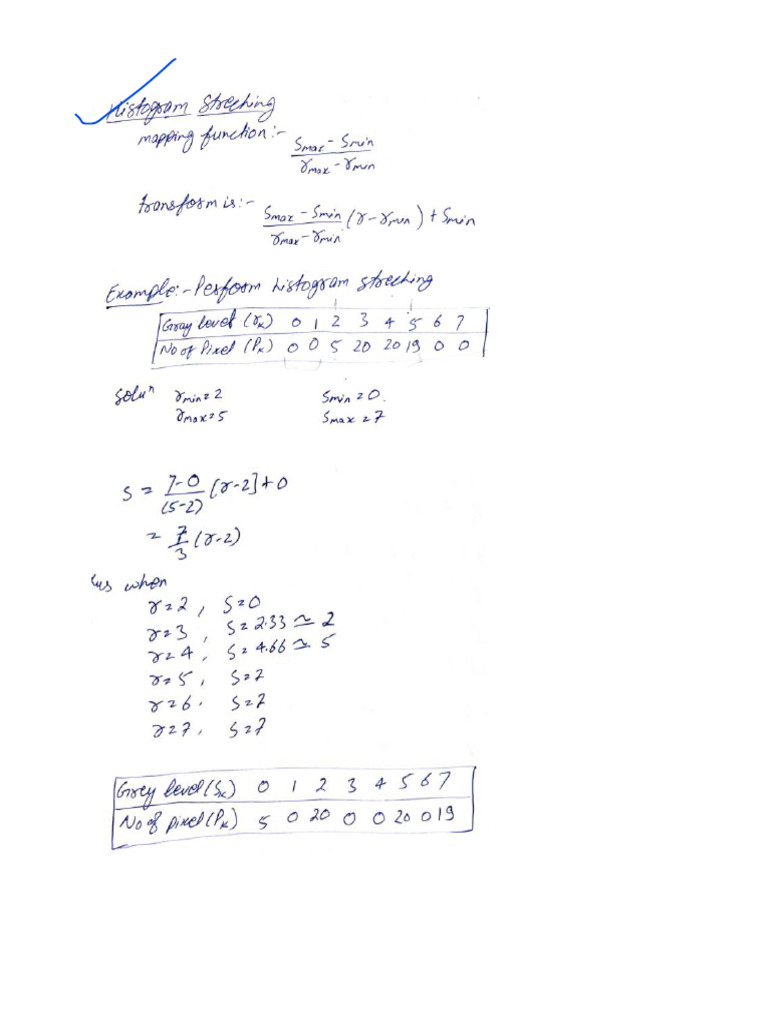 Histogram Streching
mapping function:- Smax - Smin / rmax - rmin
transform is:- Smax - Smin / rmax - rmin (r - rmin) + Smin
Example:- Perform histogram streching
Gray level (rk) 0 1 2 3 4 5 6 7
No of Pixel (Pk) 0 0 5 20 20 19 0 0
Soluⁿ rmin = 2 Smin = 0.
rmax = 5 Smax = 7
S = 7-0 / (5-2) [r-2] + 0
= 7/3 (r-2)
when
r=2, S=0
r=3, S=2.33 ≃ 2
r=4, S=4.66 ≃ 5
r=5, S=7
r=6. S=7
r=7. S=7
Grey level (Sk) 0 1 2 3 4 5 6 7
No of pixel (Pk) 5 0 20 0 0 20 0 19